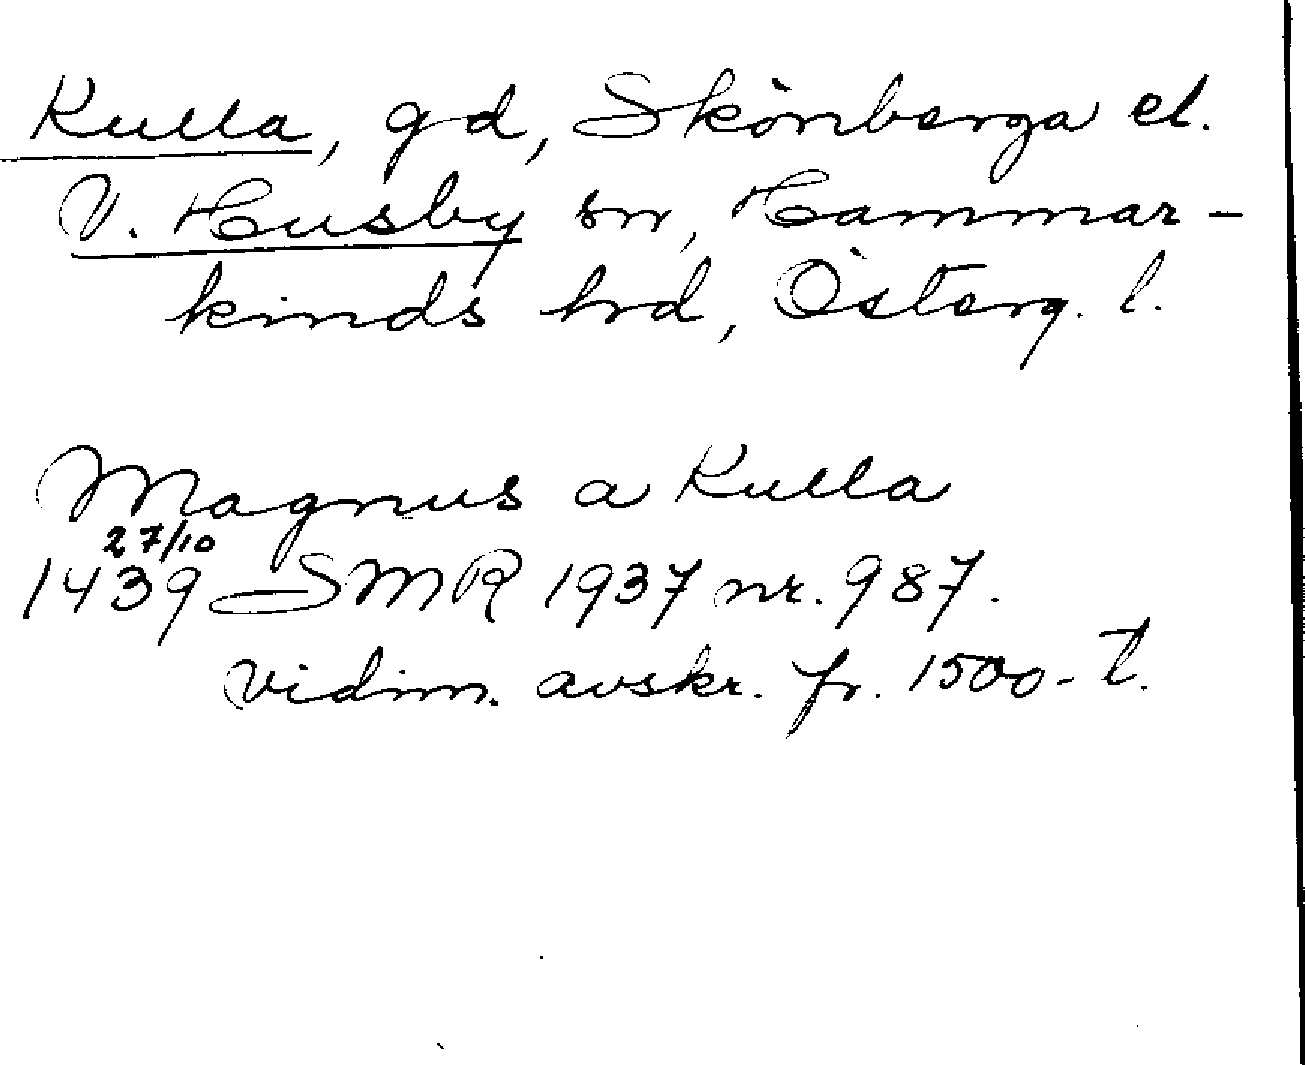 Kulla, gd, Skönberga el.
V. Husby sn, Hammar-
kinds hrd, Österg. l.
Magnus a Kulla
27/10
1439 SMR 1937 nr. 987.
vidim. avskr. fr. 1500-t.